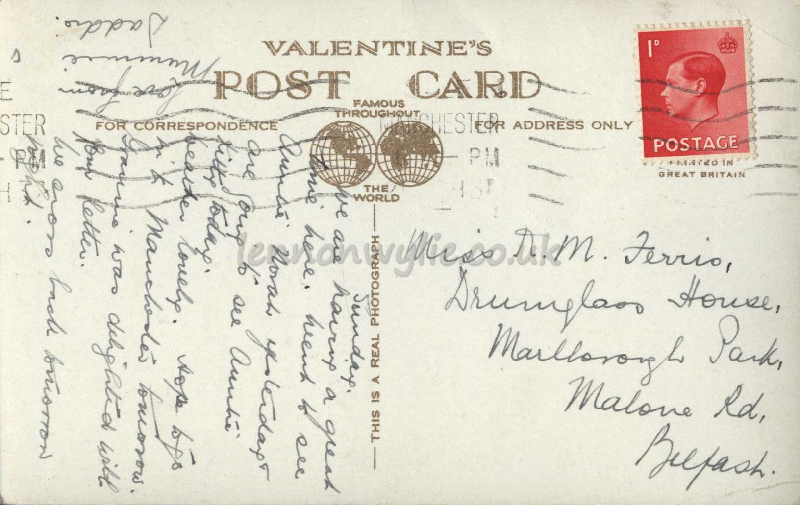 VALENTINE'S
POST CARD
FAMOUS
THROUGHOUT
THE
WORLD
FOR CORRESPONDENCE
FOR ADDRESS ONLY
PRINTED IN
GREAT BRITAIN
THIS IS A REAL PHOTOGRAPH
1D
POSTAGE
MANCHESTER
PM
STER
PM
Sunday.
We are having a great
time here, went to see
Auntie Norah yesterday &
are going to see Auntie
Kitty today.
Weather lovely. Hope to go
in to Manchester tomorrow.
Grannie was delighted with
your letter.
We cross back tomorrow
night.
Love from
Mummie
Daddio.
Miss D. M. Ferris,
Drumglass House,
Marlborough Park,
Malone Rd,
Belfast.
lennonwylie.co.uk